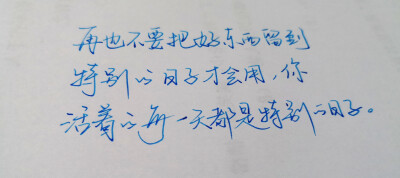 再也不要把好东西留到
特别的日子才会用，你
活着的每一天都是特别的日子。